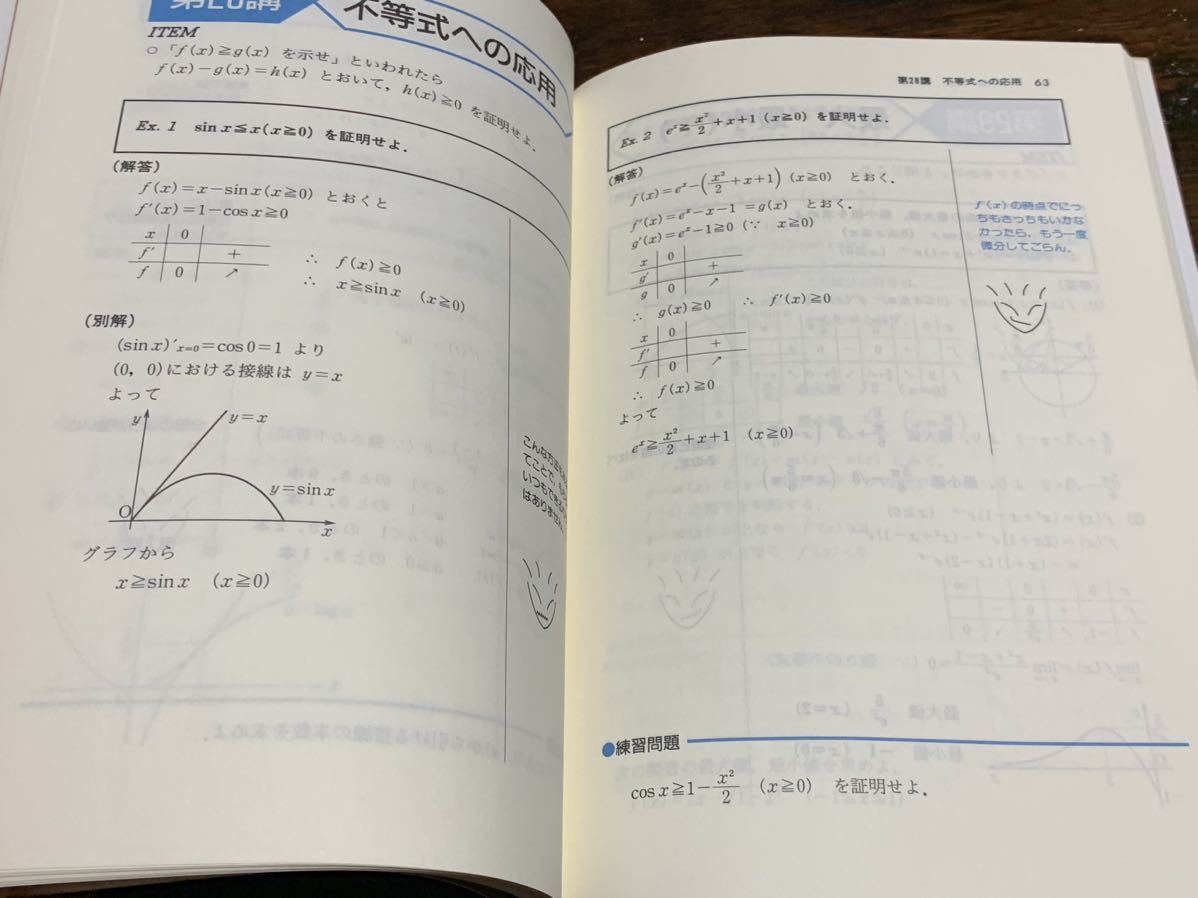 不等式への応用
ITEM
○「f(x)≧g(x) を示せ」といわれたら
f(x)−g(x)=h(x) とおいて，h(x)≧0 を証明せよ．
Ex. 1 sin x≦x(x≧0) を証明せよ．
(解答)
f(x)=x−sin x(x≧0) とおくと
f′(x)=1−cos x≧0
x 0
f′ +
f 0 ↗
∴ f(x)≧0
∴ x≧sin x (x≧0)
(別解)
(sin x)′x=0=cos 0=1 より
(0, 0)における接線は y=x
よって
y
y=x
y=sin x
O
x
グラフから
x≧sin x (x≧0)
こんな方法も
てことで，
いつもできる
はありません．
第28講 不等式への応用 63
Ex. 2 eˣ≧x²/2+x+1 (x≧0) を証明せよ．
(解答)
f(x)=eˣ−(x²/2+x+1) (x≧0) とおく．
f′(x)=eˣ−x−1=g(x) とおく．
g′(x)=eˣ−1≧0 (∵ x≧0)
x 0
g′ +
g 0 ↗
∴ g(x)≧0 ∴ f′(x)≧0
x 0
f′ +
f 0 ↗
∴ f(x)≧0
よって
eˣ≧x²/2+x+1 (x≧0)
f(x)の時点でにっ
ちもさっちもいかな
かったら，もう一度
微分してごらん．
●練習問題
cos x≧1−x²/2 (x≧0) を証明せよ．